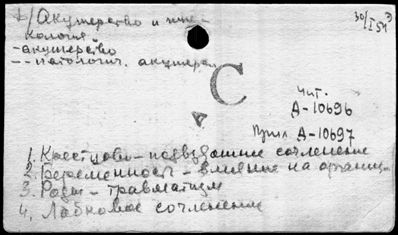 1/ Акушерство и гине-
кология.
- акушерство
-- патологич. акушер.
30/I 51
С
Чит.
А-10696
Прил А-10697
1. Крестцово-подвздошные сочленение
2. Беременность - влияние на организм
3. Роды - травматизм
4. Лобковое сочленение